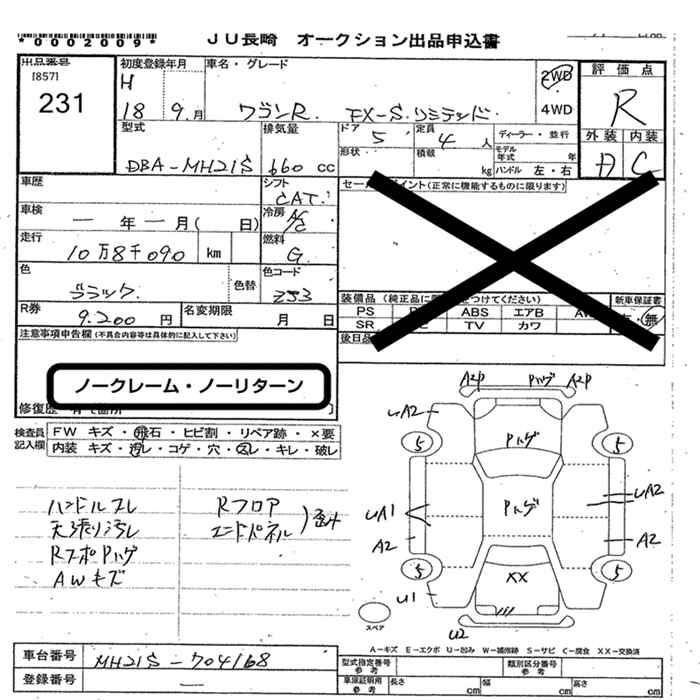 *0002009*
JU長崎 オークション出品申込書
出品番号
[857]
231
初度登録年月
H
18 9.月
車名・グレード
ワゴンR. FX-S.リミテッド
2WD
4WD
評価点
R
外装 内装
A C
型式
DBA-MH21S
排気量
660 cc
ドア 5
定員 4 人
形状
積載 kg
ディーラー・並行
モデル年式 年
ハンドル 左・右
車歴
シフト
CAT.
セールスポイント(正常に機能するものに限ります)
車検
― 年 ― 月( 日)
冷房 A/C
走行
10万8千090 km
燃料
G.
色
ブラック.
色替
色コード
ZJ3
装備品(純正品に限りをつけてください)
新車保証書
PS ABS エアB
SR TV カワ
無
後日品
R券
9.200 円
名変期限
月 日
注意事項申告欄(不具合内容等は具体的に記入して下さい)
ノークレーム・ノーリターン
修復歴
検査員
記入欄
FW キズ・飛石・ヒビ割・リペア跡・×要
内装 キズ・汚レ・コゲ・穴・スレ・キレ・破レ
ハンドルスレ
天張り汚レ
RスポPハゲ
AWキズ
Rフロア
エンドパネル
)歪み
A2P Pハゲ A2P
UA2
5 5
Pハゲ
Pハゲ
UA1 UA2
A2 A2
5 5
XX
U1
U2
スペア
A-キズ E-エクボ U-凹み W-補修跡 S-サビ C-腐食 XX-交換済
車台番号
MH21S-704168
登録番号
―
型式指定番号
参考
類別区分番号
参考
車庫証明用
参考
長さ cm 幅 cm 高さ cm